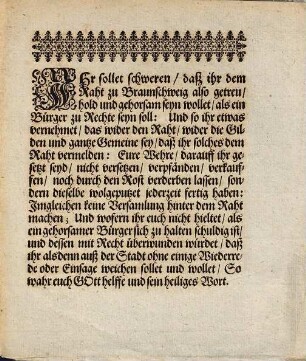 IHr sollet schweren / daß ihr dem
Raht zu Braunschweig also getreu /
hold und gehorsam seyn wollet / als ein
Bürger zu Rechte seyn soll: Und so ihr etwas
vernehmet / das wider den Raht / wider die Gil-
den und gantze Gemeine sey / daß ihr solches dem
Raht vermelden: Eure Wehre / darauff ihr ge-
setzt seyd / nicht versetzen / verpfänden / verkauf-
fen / noch durch den Rost verderben lassen / son-
dern dieselbe wolgeputzet jederzeit fertig haben:
Imgleichen keine Versamlung hinter dem Raht
machen; Und wofern ihr euch nicht hieltet / als
ein gehorsamer Bürger sich zu halten schuldig ist /
und dessen mit Recht überwunden würdet / daß
ihr alsdenn auß der Stadt ohne einige Wiederre-
de oder Einsage weichen sollet und wollet / So
wahr euch GOtt helffe und sein heiliges Wort.